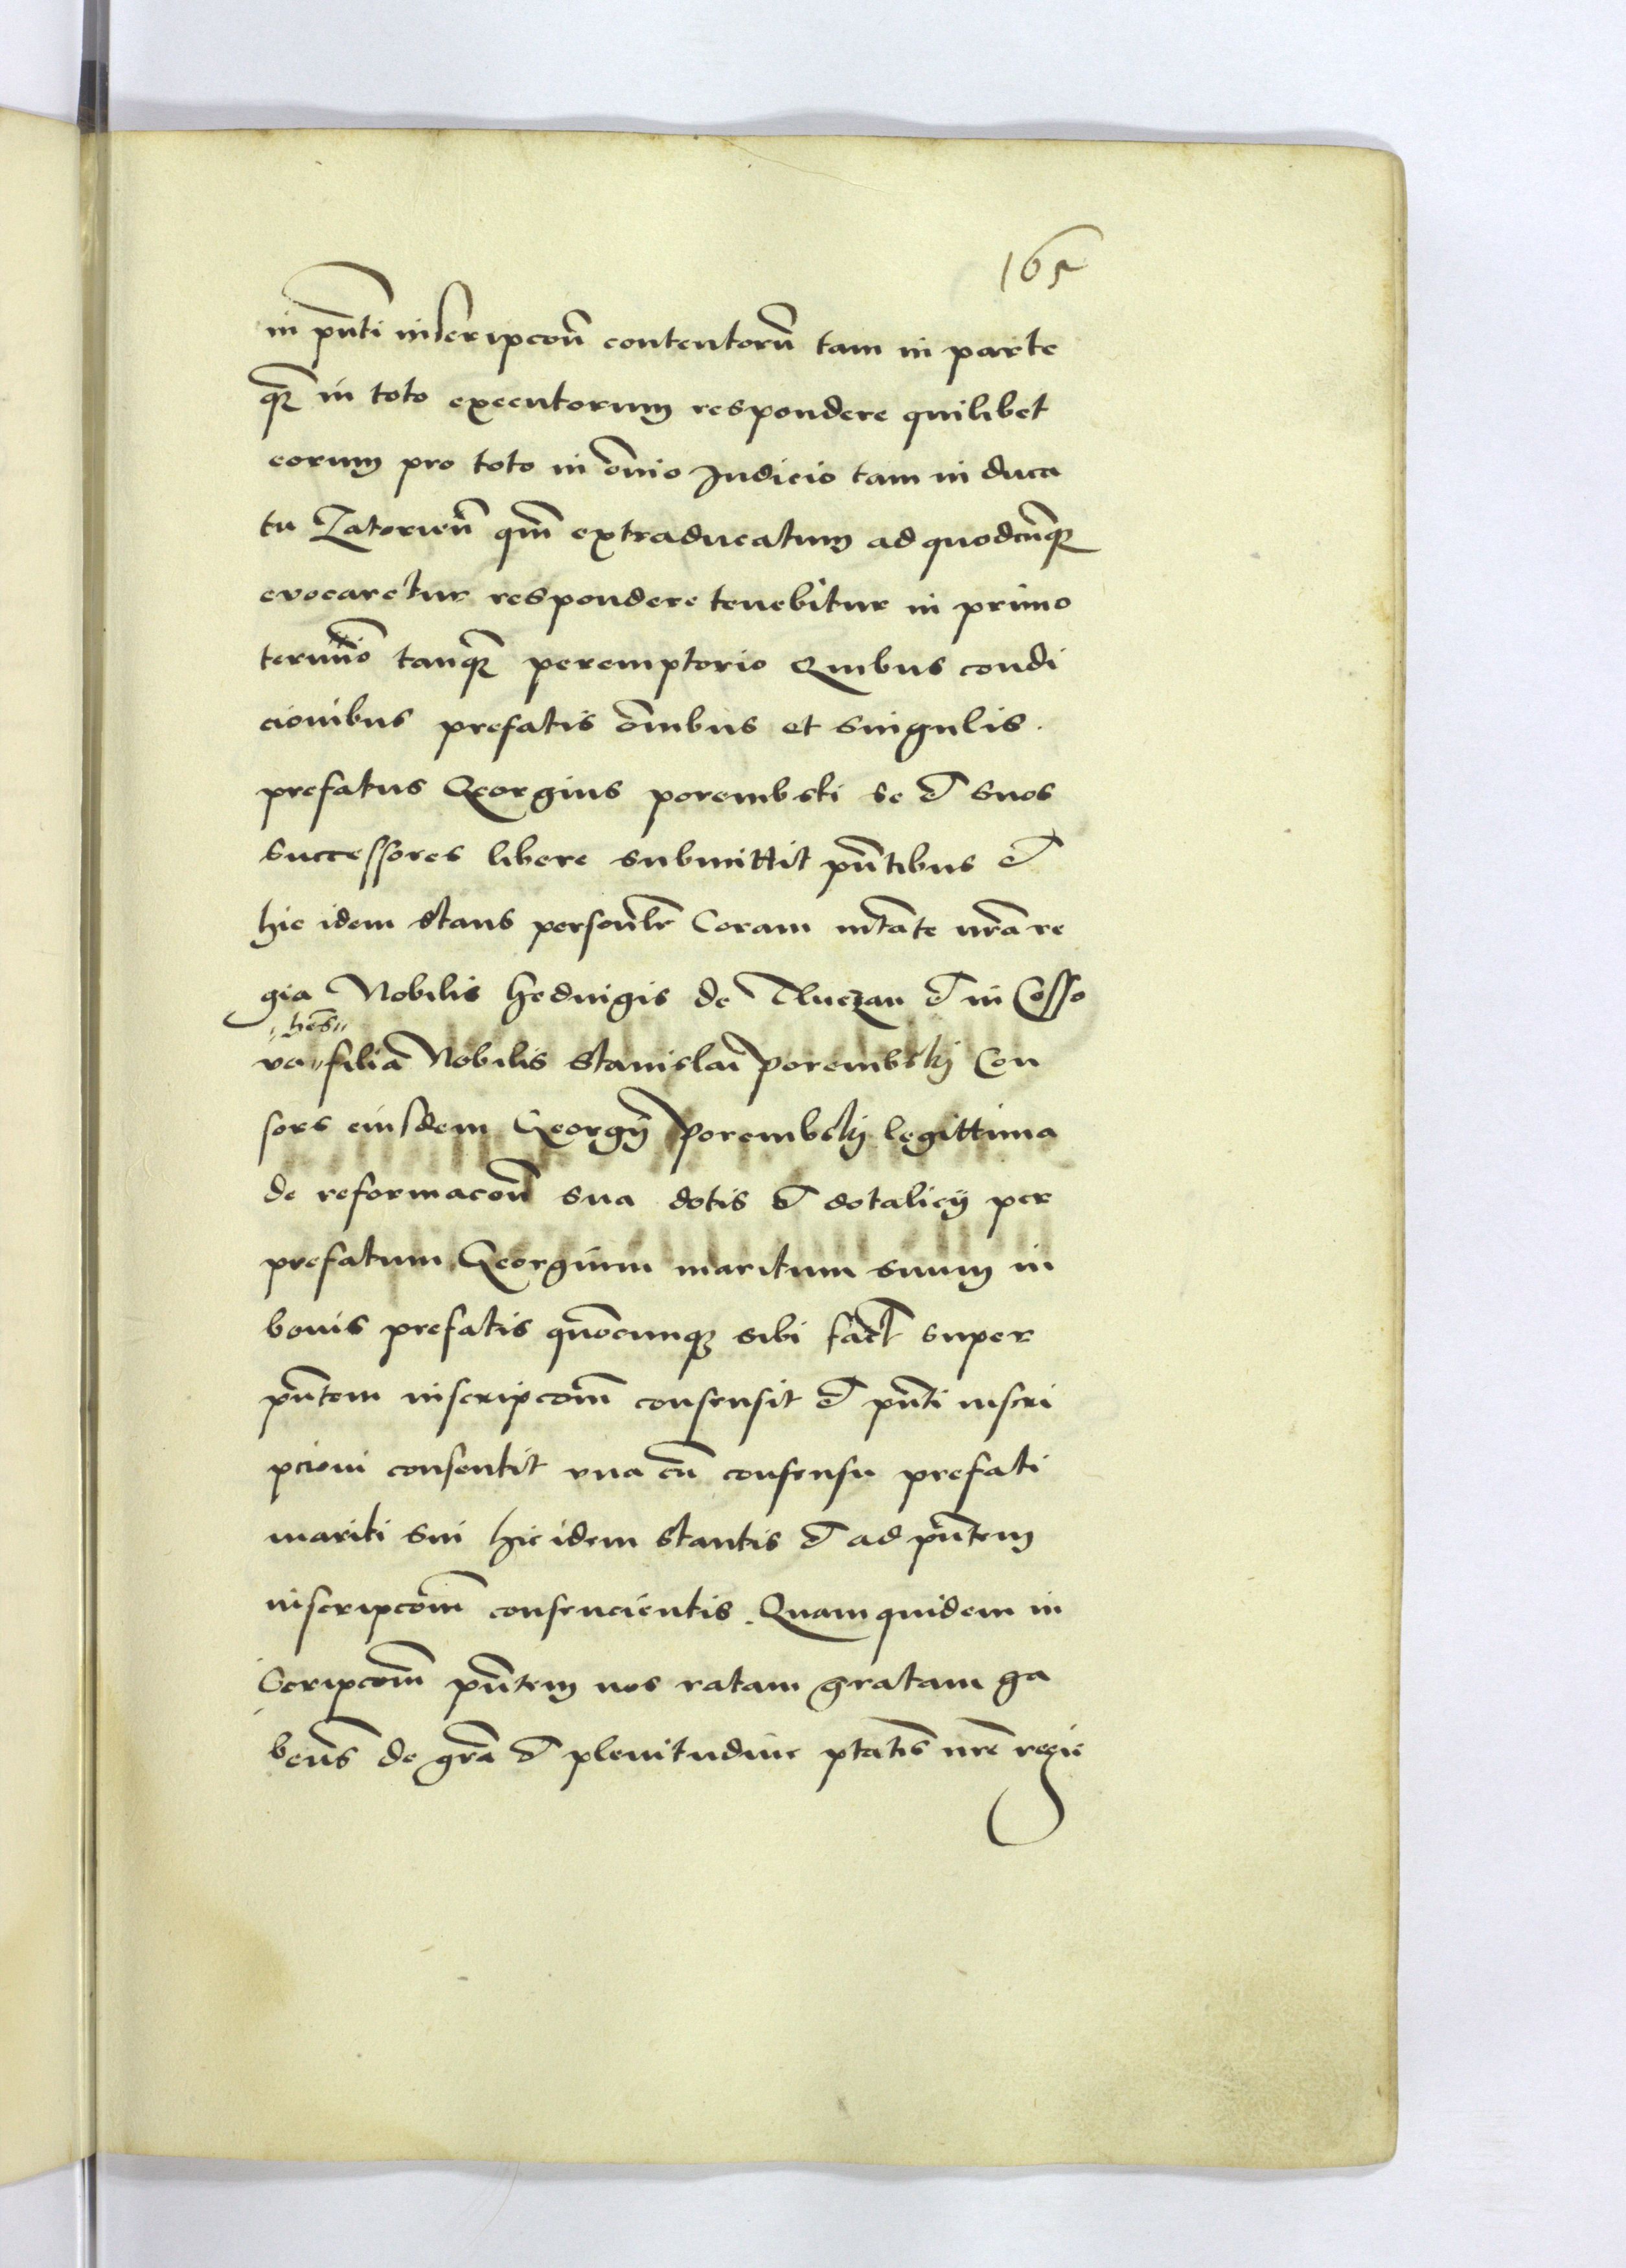 165
in pn̄ti inscripcōn contentorū tam in parte
qꝫ in toto executorum respondere quilibet
eorum pro toto in om̄io Judicio tam in duca
tu Zatorien̄ qm̄ extraducatum ad quodcūqꝫ
evocaretur respondere tenebitur in primo
termīo tanqꝫ peremptorio Quibus condi
cionibus prefatis om̄ibus et singulis.
prefatus Georgius porembski se et suos
successores libere submittit pn̄tibus et
hic idem stans personl̄r Coram mt̄ate nr̄a re
gia Nobilis Hedvigis de Tluczan et in Cosso
"hes̄"
va "filia Nobilis Stanislai porembskij Con
sors eiusdem Georgij porembskij legittima
de reformacōn sua dotis et dotalicij per
prefatum Georgium maritum suum in
bonis prefatis qn̄ocumqꝫ sibi fact̄ super
pn̄tem inscripcōm consensit et pn̄ti inscri
pcioni consentit vna cū consensu prefati
mariti sui hic idem stantis et ad pn̄tem
inscripcōm consencientis. Quam quidem in
scripcōm pn̄tem nos ratam gratam ha
ben̄s de grā et plenitudine ptātis nr̄e regie